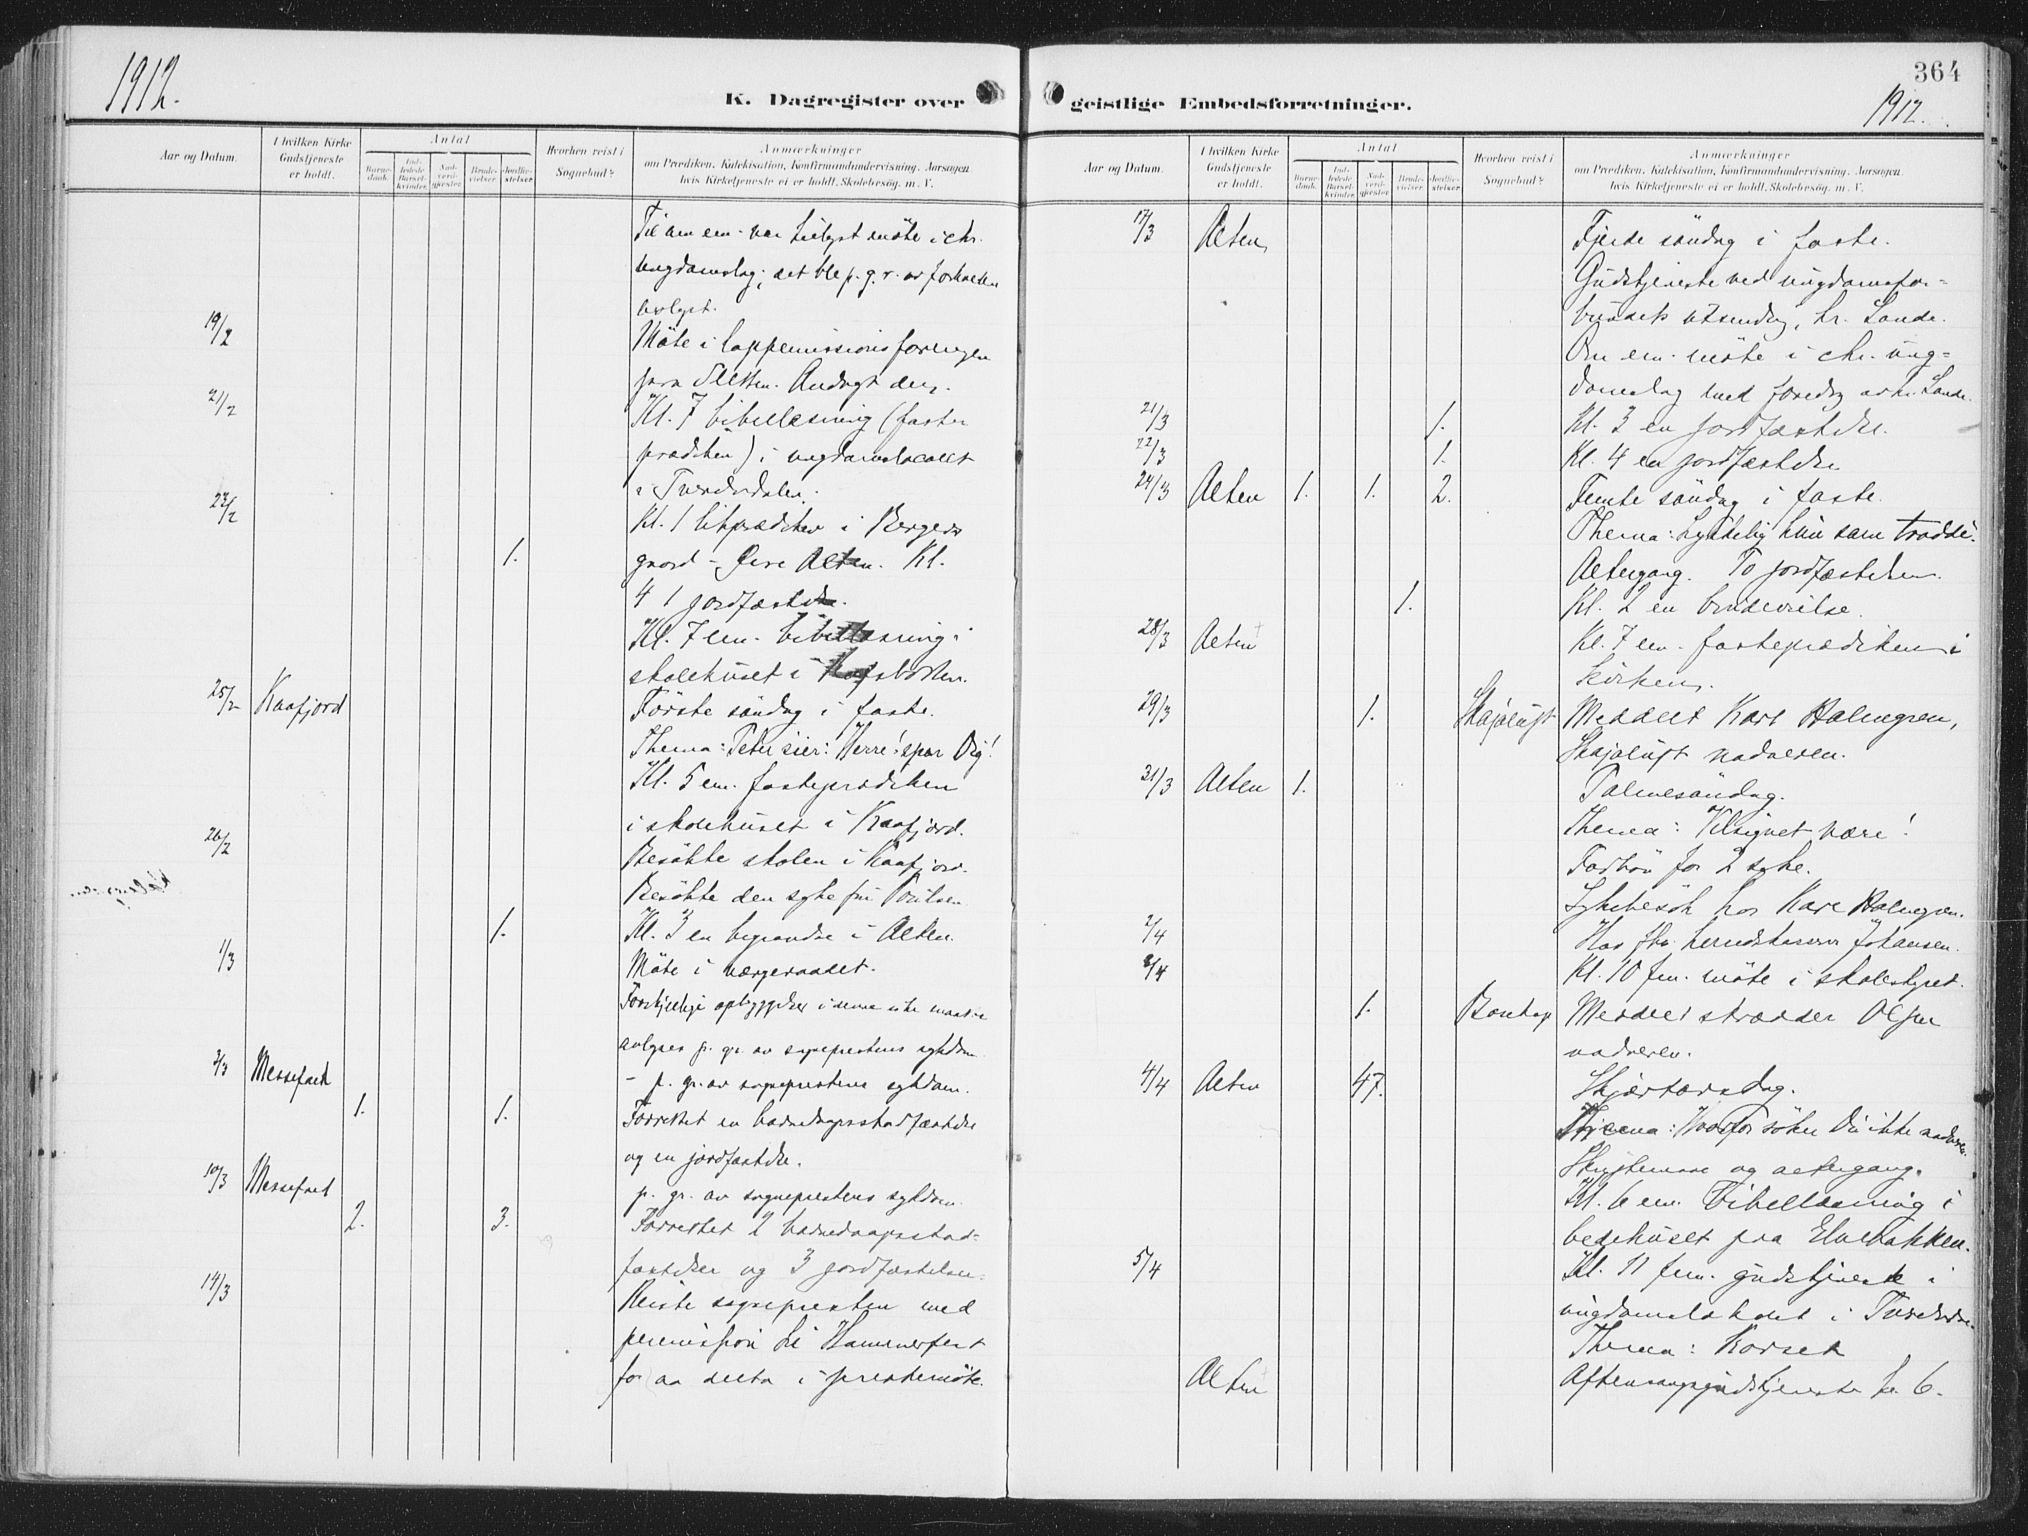 1912.
K. Dagregister over
Aar og Datum.
I hvilken Kirke Gudstjeneste er holdt.
Antal
Barnedaab.
Indledede Barselkvinder.
Nadverdgjester.
Brudevielser.
Jordfæstelser.
Hvorhen reist i Sognebud?
Anmærkninger
om Prædiken, Katekisation, Konfirmandundervisning. Aarsagen
hvis Kirketjeneste ei er holdt. Skolebesøg. m. V.
Til om em. var tillyst møte i chr.
ungdomslag; det ble p. g. r. av forkølelse
avlyst.
19/2 Møte i lappemissionsforeningen
paa Sletten. Andagt der.
21/2 Kl. 7 bibellæsning (faste-
prædiken) i ungdomslocalet
i Tverelvdalen.
23/2 Kl. 1 likprædiken i Bergers
1. gaard - Øvre Alten. Kl.
4 1 jordfæstelse.
Kl. 7 em. bibellæsning i
skolehuset i
25/2 Kaafjord Første søndag i faste.
Thema: Peter sier: Herre! spar Dig!
Kl. 5 em. fasteprædiken
i skolehuset i Kaafjord.
26/2 Besøkte skolen i Kaafjord.
Besøkte den syke fru Poulsen.
1. Kl. 3 en begravelse i Alten.
1/3 Møte i værgeraadet.
Forskjellige opbyggelser i denne uke maatte
avlyses p. gr. av sogneprestens sykdom.
3/3 Messefald - p. gr. av sogneprestens sykdom.
1. 1. Forrettet en barnedaapsstadfæstelse
og en jordfæstelse.
10/3 Messefald p. gr. av sogneprestens sykdom.
2. 3. Forrettet 2 barnedaapsstad-
fæstelser og 3 jordfæstelser.
14/3 Reiste sognepresten med
permission til Hammerfest
for aa delta i prestemøte.
364
1912.
geistlige Embedsforretninger.
Aar og Datum.
I hvilken Kirke Gudstjeneste er holdt.
Antal
Barnedaab.
Indledede Barselkvinder.
Nadverdgjester.
Brudevielser.
Jordfæstelser.
Hvorhen reist i Sognebud?
Anmærkninger
om Prædiken, Katekisation, Konfirmandundervisning. Aarsagen
hvis Kirketjeneste ei er holdt. Skolebesøg. m. V.
17/3 Alten Fjerde søndag i faste.
Gudstjeneste ved ungdomsfor-
bundets utsending, hr. Lande.
Om em. møte i chr. ung-
domslag med foredrag av hr. Lande.
21/3 1. Kl. 3 en jordfæstelse.
22/3 1. Kl. 4 en jordfæstelse
24/3 Alten 1. 1. 2. Femte søndag i faste.
Thema: Lykkelig hun som trodde!
Altergang. To jordfæstelser.
1. Kl. 2 en brudevielse.
28/3 Alten Kl. 7 em. fasteprædiken i
kirken.
29/3 1. Skajaluft Meddelt Kare Halmgren,
Skajaluft nadveren.
31/3 Alten 1. Palmesøndag.
Thema: Velsignet være!
Forbøn for 2 syke.
Sykebesøk hos Kare Halmgren.
2/4 Hos Johansen.
3/4 Kl. 10 fm. møte i skolestyret.
1. Bontap Meddelt skrædder Olsen
nadveren.
4/4 Alten 47. Skjærtorsdag.
Thema: Hvorfor søker Du ikke nadveren.
Skriftemaal og altergang.
Kl. 6 em. bibellæsning i
bedehuset paa Elvebakken.
5/4 Kl. 11 fm. gudstjeneste i
ungdomslokalet i Tverelvda.
Thema: Korset
Alten Aftensangsgudstjeneste kl. 6.